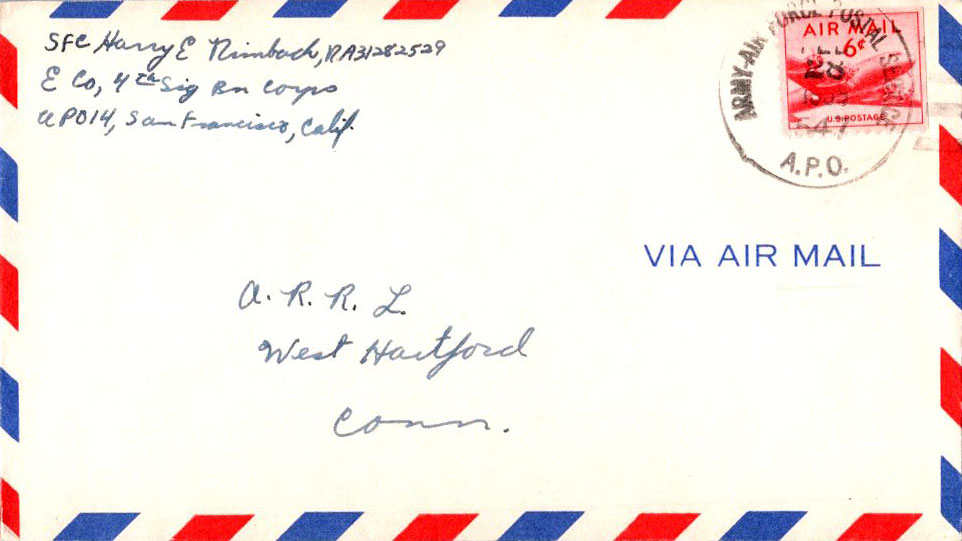 SFC Harry E Nimbach, RA31282529
E Co, 4th Sig Bn Corps
APO 14, San Francisco, Calif.
ARMY-AIR FORCE POSTAL SERVICE
AIR MAIL
6¢
28
U.S. POSTAGE
A.P.O.
VIA AIR MAIL
A. R. R. L.
West Hartford
Conn.